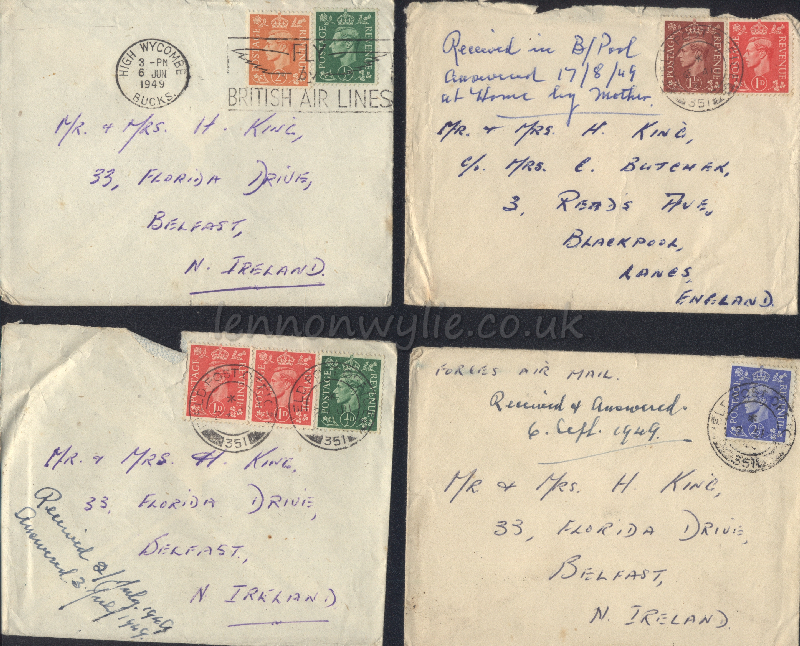 HIGH WYCOMBE
3-PM
6 JUN
1949
BUCKS.
FLY
BRITISH AIR LINES
POSTAGE REVENUE
POSTAGE REVENUE
Mr. & Mrs. H. King,
33, Florida Drive,
Belfast,
N. Ireland.
Received in B/Pool
Answered 17/8/49
at Home by Mother.
POSTAGE REVENUE
POSTAGE REVENUE
1D
351
Mr. & Mrs. H. King,
c/o. Mrs. C. Butcher,
3, Reads Ave,
Blackpool,
Lancs,
England.
lennonwylie.co.uk
POSTAGE REVENUE
1D
POSTAGE REVENUE
1D
POSTAGE REVENUE
351
351
Mr. & Mrs. H. King,
33, Florida Drive,
Belfast,
N. Ireland
Received 2/July 1949
Answered 3 July 1949.
FORCES AIR MAIL.
Received & Answered.
6. Sept. 1949.
POSTAGE REVENUE
351
Mr & Mrs. H. King,
33, Florida Drive,
Belfast,
N. Ireland.